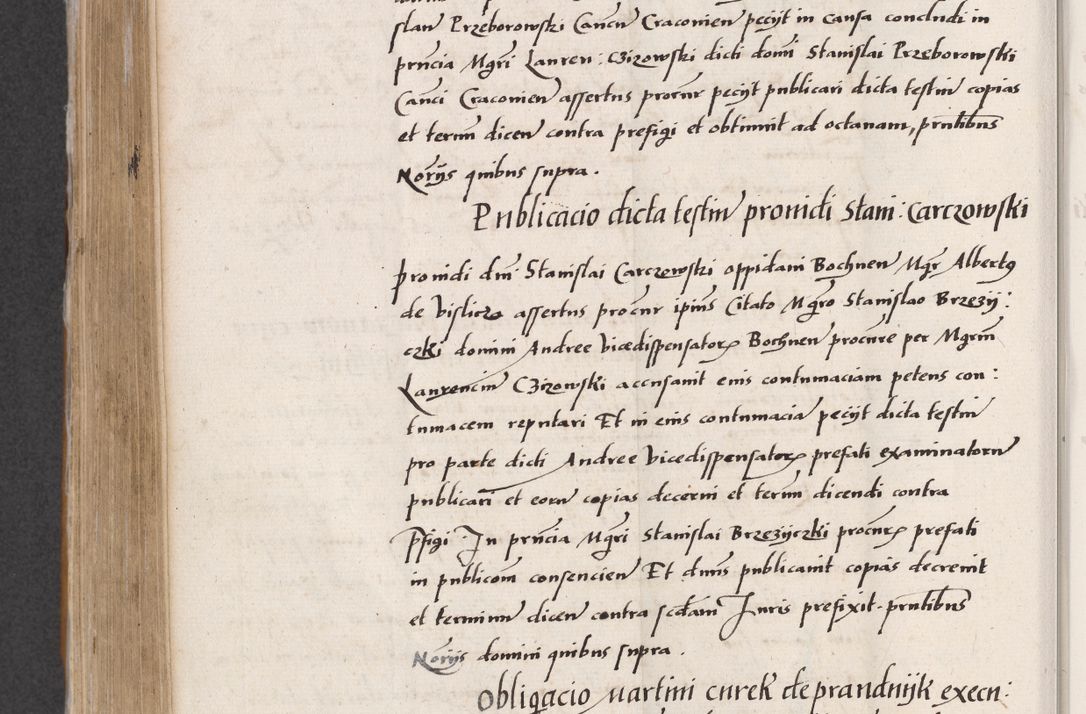 slaw Przeborowski Cancn Craconien pecijt in causa concludi in
prncia Mgri Lauren: Czizowski dicti domi Stanislai Przeborowski
Canci Craconien assertus procur pecijt publicari dicta testiu copias
et termu dicen contra prefigi et obtinuit ad octauam, prntibus
Norijs quibus supra.
Publicacio dicta testiu prouidi Stani: Carczowski
Prouidi dni Stanislai Carczewski oppidani Bochnen Mgr Albertus
de Vislicza assertus procur ipius Citato Mgro Stanislao Brzezij:
czki domini Andree Vicedispensatoris Bochnen procure per Mgrm
Laurenciu Czizowski accusauit eius contumaciam petens con:
tumacem reputari Et in eius contumacia pecijt dicta testiu
pro parte dicti Andree Vicedispensatoris prefati examinatorum
publicari et eoru copias decerni et termu dicendi contra
Pfigi. In prncia Mgri Stanislai Brzezijczki procuris prefati
in publicom consencien Et dnus publicauit copias decreuit
et terminu dicen contra scdam Juris prefixit. prntibus
Norijs domini quibus supra.
Obligacio Martini Curek de prandnijk execu: